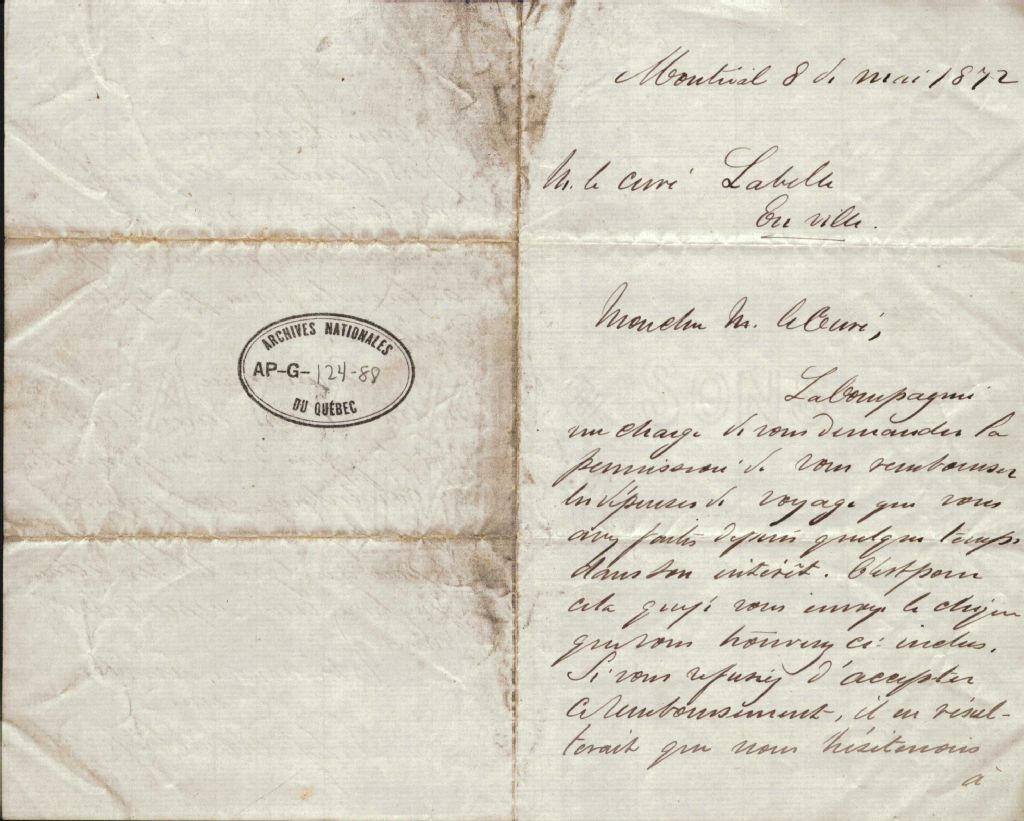 ARCHIVES NATIONALES
AP-G-124-88
DU QUÉBEC
Montréal 8 de mai 1872
M. le curé Labelle
En ville.
Mon cher M. le Curé,
La Compagnie
me charge de vous demander la
permission de vous rembourser
les dépenses de voyage que vous
avez faites depuis quelque temps
dans son intérêt. C'est pour
cela que je vous envoye le chèque
que vous trouverez ci-inclus.
Si vous refusiez d'accepter
ce remboursement, il en résul-
terait que nous hésiterions
à